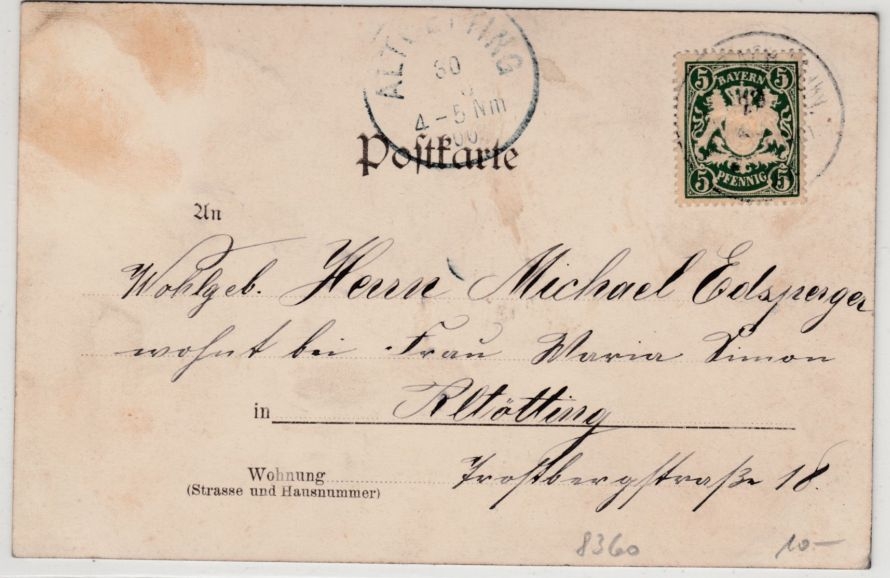 ALTOETTING
30
4-5 Nm
00
5 BAYERN 5
5 PFENNIG 5
Postkarte
An
Wohlgeb. Herrn Michael Edsperger
wohnt bei Frau Maria Simon
in Altötting
Wohnung Trostbergstraße 18.
(Strasse und Hausnummer)
8360 10-